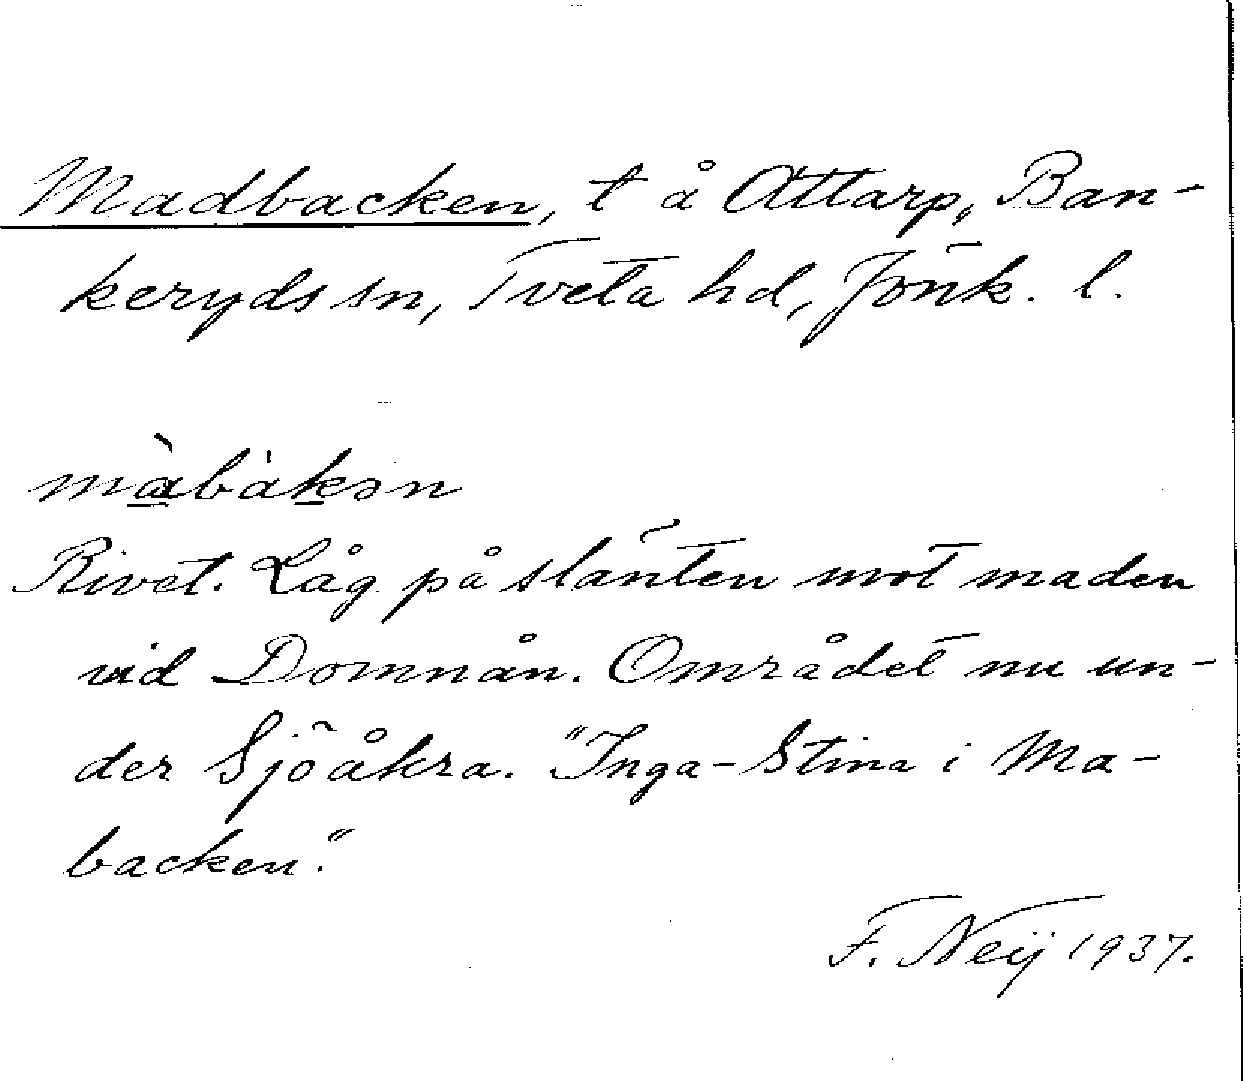 Madbacken, t å Attarp, Ban-
keryds sn, Tveta hd, Jönk. l.
màbàkən
Rivet. Låg på slänten mot maden
vid Domnån. Området nu un-
der Sjöåkra. "Inga-Stina i Ma-
backen."
F. Neij 1937.